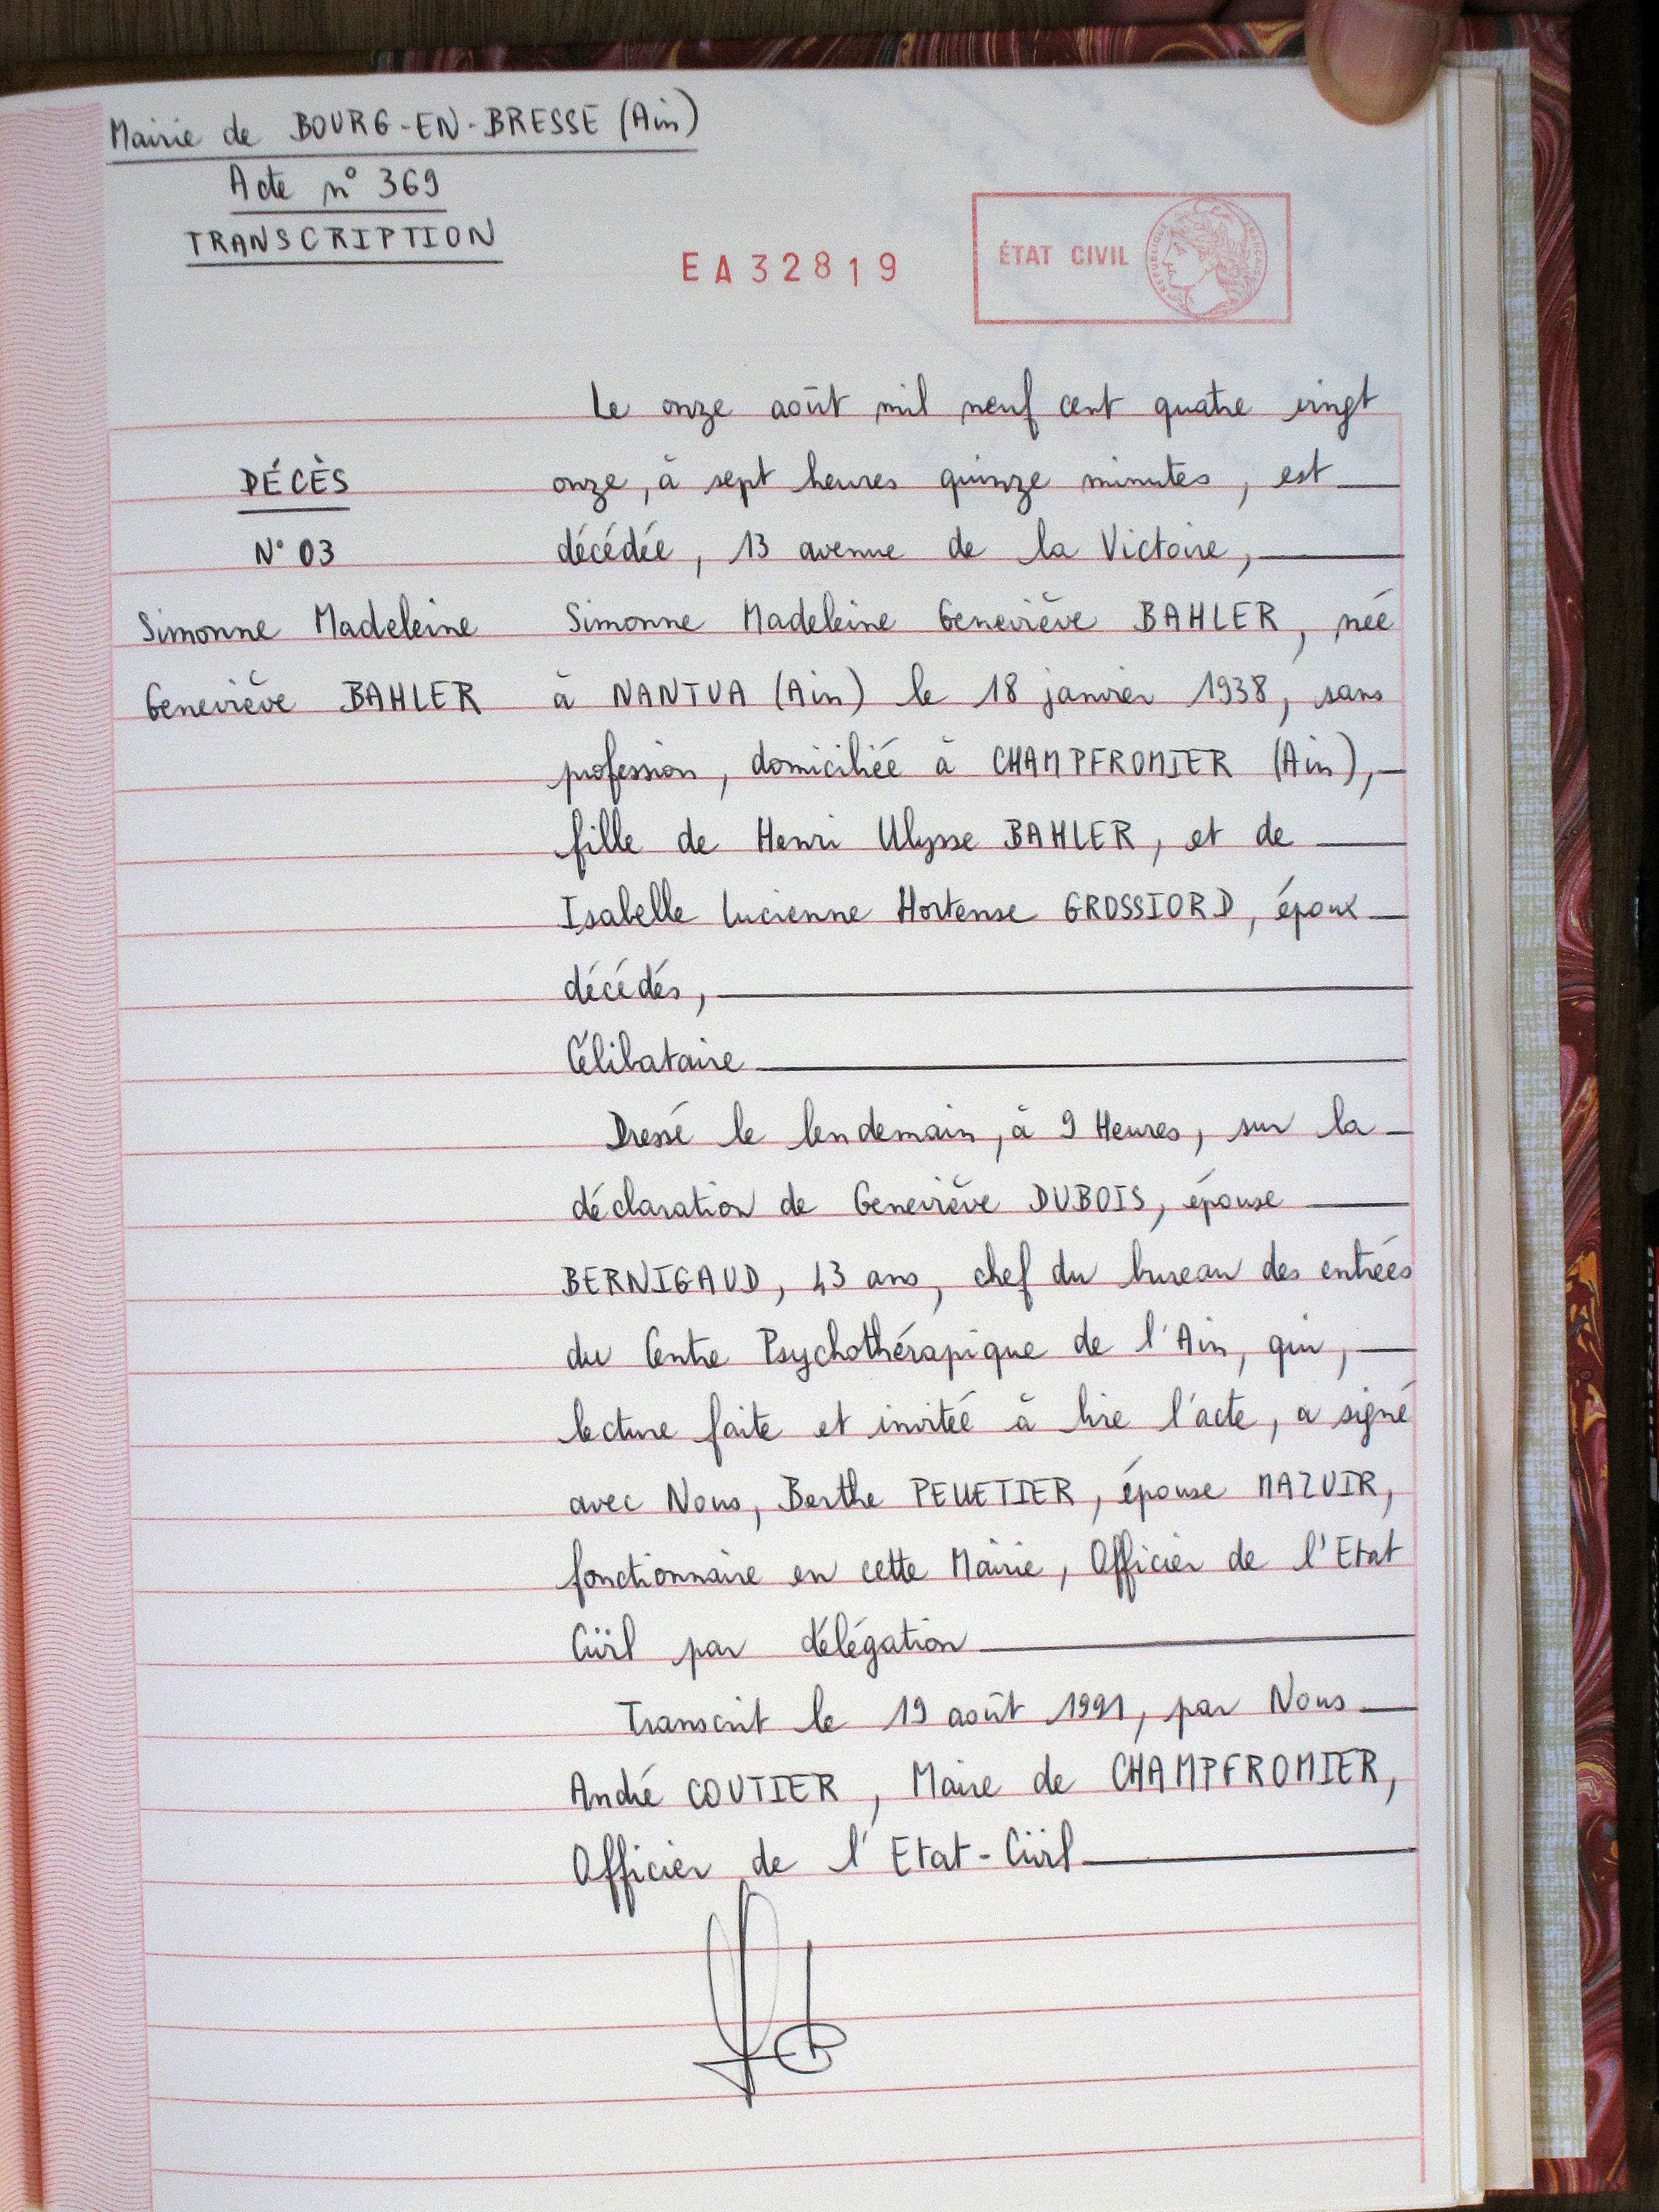 Mairie de BOURG-EN-BRESSE (Ain)
Acte n° 369
TRANSCRIPTION
EA32819
ÉTAT CIVIL
Le onze août mil neuf cent quatre vingt
DÉCÈS
onze, à sept heures quinze minutes, est
N° 03
décédée, 13 avenue de la Victoire,
Simonne Madeleine
Simonne Madeleine Geneviève BAHLER, née
Geneviève BAHLER
à NANTUA (Ain) le 18 janvier 1938, sans
profession, domiciliée à CHAMPFROMIER (Ain),
fille de Henri Ulysse BAHLER, et de
Isabelle Lucienne Hortense GROSSIORD, époux
décédés,
Célibataire
Dressé le lendemain, à 9 Heures, sur la
déclaration de Geneviève DUBOIS, épouse
BERNIGAUD, 43 ans, chef du bureau des entrées
du Centre Psychothérapique de l'Ain, qui,
lecture faite et invitée à lire l'acte, a signé
avec Nous, Berthe PELLETIER, épouse MAZUIR,
fonctionnaire en cette Mairie, Officier de l'Etat
Civil par délégation
Transcrit le 19 août 1991, par Nous
André COUTIER, Maire de CHAMPFROMIER,
Officier de l'Etat-Civil